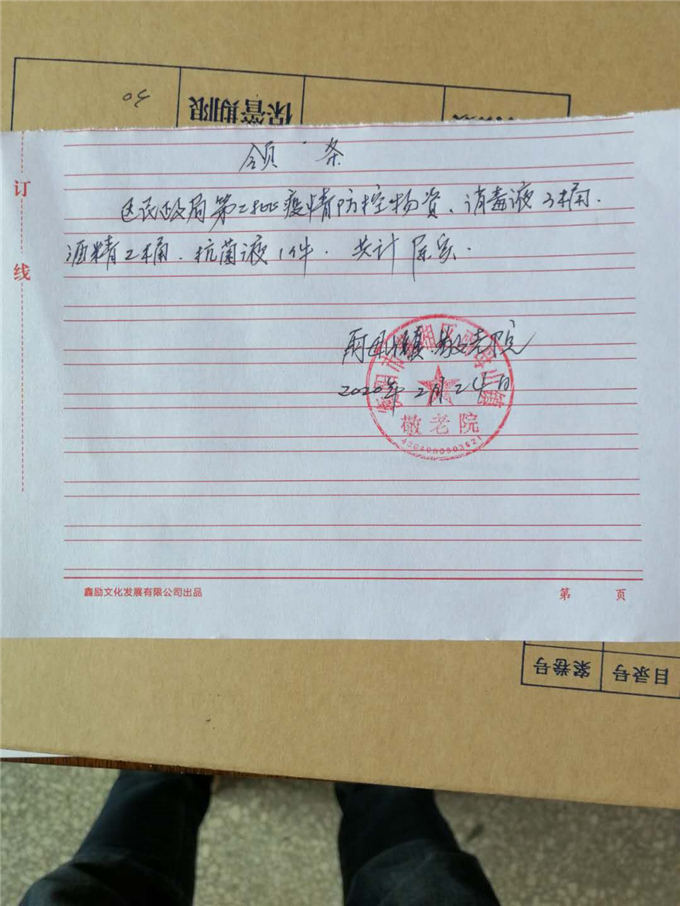 30
保管期限
领条
订
线
区民政局第2批疫情防控物资、消毒液3桶.
酒精2桶.抗菌液1件.共计
雨母山镇敬老院
2020年2月24日
敬老院
鑫励文化发展有限公司出品
第 页
案卷号
目录号